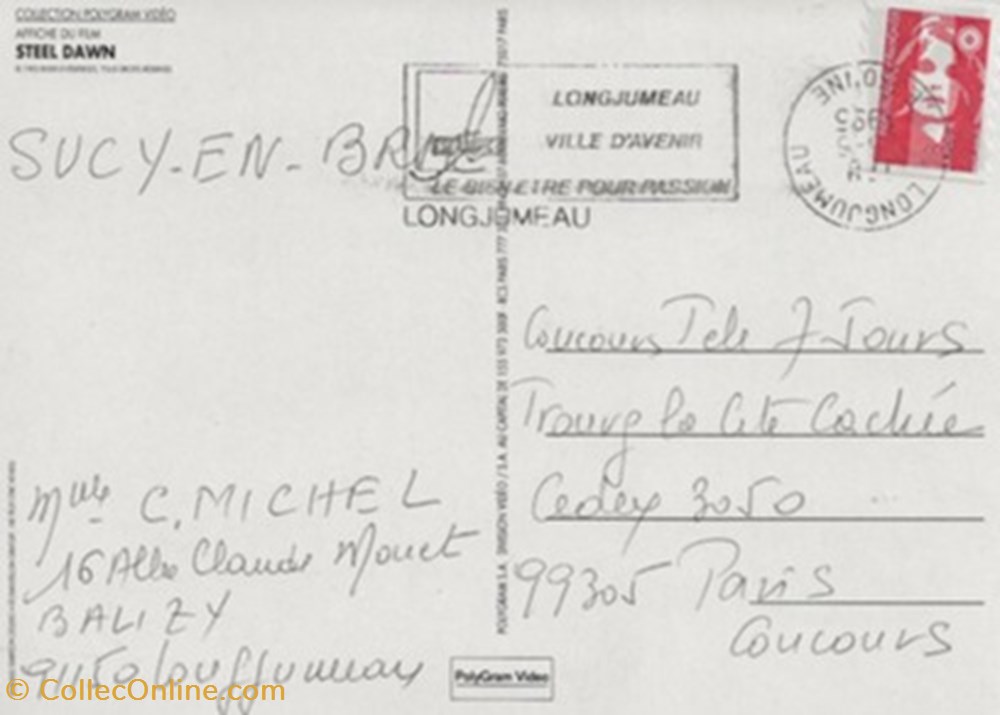 COLLECTION POLYGRAM VIDÉO
AFFICHE DU FILM
STEEL DAWN
SUCY-EN-BRIE
LONGJUMEAU
VILLE D'AVENIR
LE BIEN ETRE POUR PASSION
LONGJUMEAU
LONGJUMEAU
Concours Tele 7 Jours
Trouvez la Cité Cachée
Cedex 3050
99305 Paris
Concours
C. MICHEL
16 Allée Claude Monet
BALIZY
Longjumeau
POLYGRAM S.A. DIVISION VIDÉO / S.A. AU CAPITAL DE 155 973 500F - RCS PARIS
75017 PARIS
PolyGram Video
© CollecOnline.com